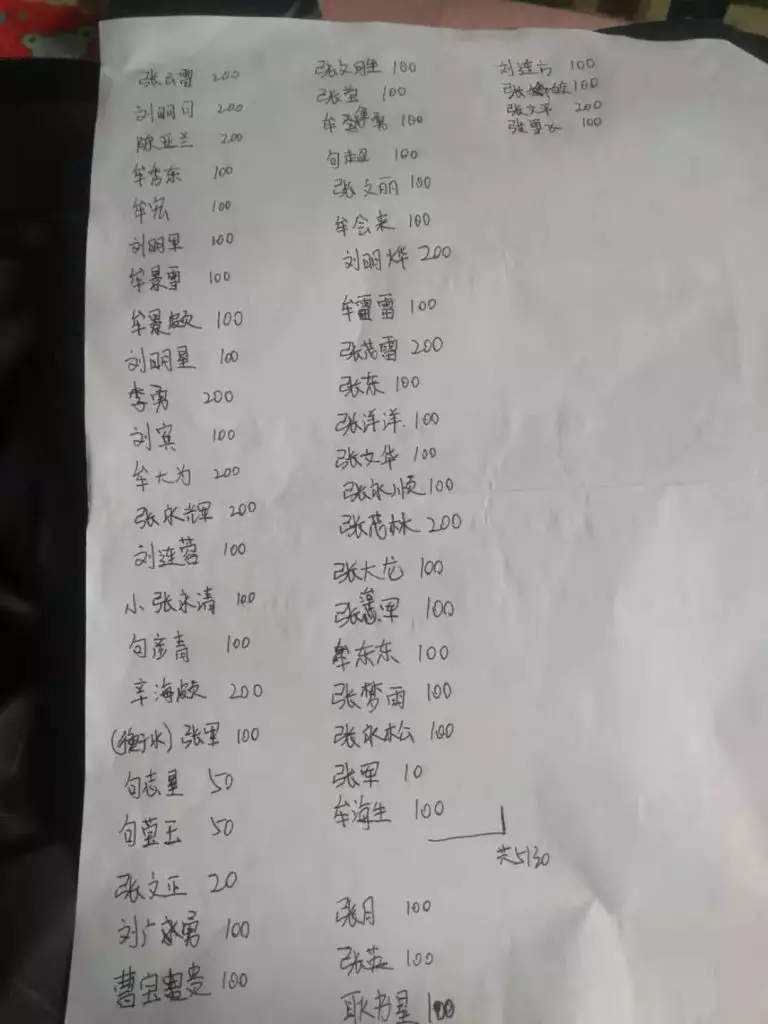 张云雷 200
刘明月 200
陈亚兰 200
牟秀东 100
牟宏 100
刘明里 100
牟景雪 100
牟景颇 100
刘明星 100
李勇 200
刘宾 100
牟大为 200
张永辉 200
刘连蓉 100
小张永清 100
句彦青 100
辛海颇 200
(衡水)张军 100
句志星 50
句莹玉 50
张文正 20
刘广勇 100
曹宝贵 100
张文胜 100
张莹 100
牟 勇 100
句超 100
张文丽 100
牟会来 100
刘明烨 200
牟雷雷 100
张茂雷 200
张东 100
张洋洋 100
张文华 100
张永顺 100
张茂林 200
张大龙 100
张 军 100
牟东东 100
张梦雨 100
张永松 100
张军 10
牟海生 100
共5130
张月 100
张英 100
耿书星 100
刘连方 100
张 100
张文平 200
张雪 100